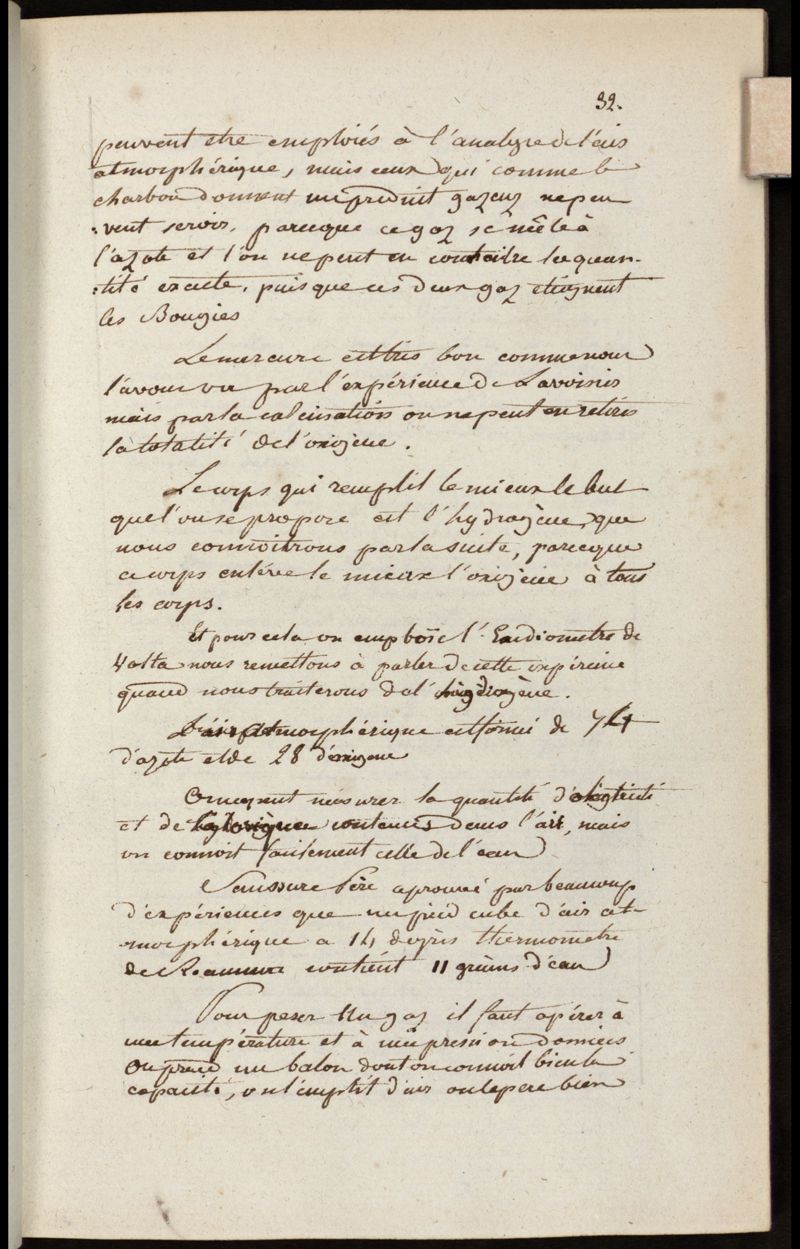 32.
peuvent etre emploiés à l'analyse de l'air
atmosphérique, mais ceux qui comme le
charbon donnent un produit gazeuz ne peu
:vent servir, parceque ce gaz se mêle à
l'azote et l'on ne peut en connaitre la quan-
:tité exacte, puisque ces deux gaz eteignent
les Bougies
Le mercure est très bon comme nous
l'avons vu par l'expérience de Lavoisier
mais par la calcination on ne peut en retirer
la totalité de l'oxigène.
Le corps qui remplit le mieux le but
que l'on se propose est l'hydrogène, que
nous connoitrons par la suite, parceque
ce corps enlève le mieux l'oxigène à tous
les corps.
Et pour cela on emploïe l'Eudiometre de
Volta nous remettons à parler de cette expérience
quand nous traiterons de l'hydrogène.
L'air atmosphérique est formé de 74
d'azote et de 28 d'oxigene
On ne peut mésurer la quantité d'électricité
et de calorique contenus dans l'air, mais
on connoit facilement celle de l'eau
Saussure Père a prouvé par beaucoup
d'expériences que un pied cube d'air at-
mosphérique a 14 degrès thermometre
de Reaumur contient 11 grains d'eau
Pour peser un gaz il faut opérer à
une température et à une pression données
On prend un balon dont on connoit bien la
capacité, on l'emplit d'air on le pese bien